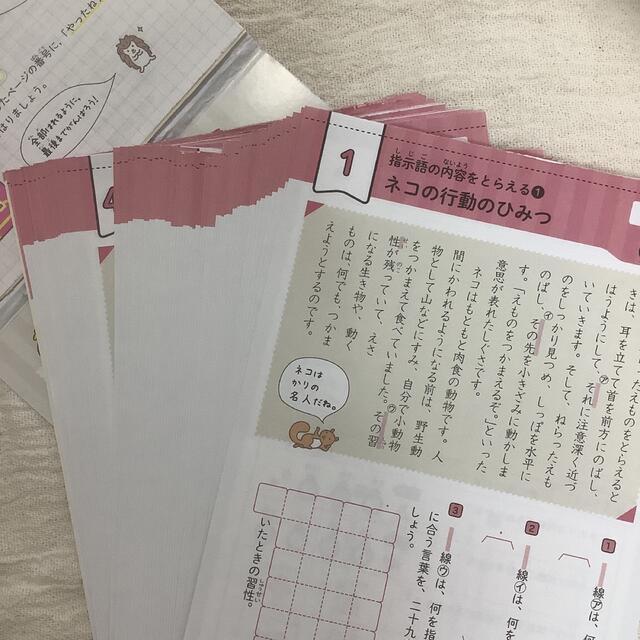 やったね
たページの番号に、「
はりましょう。
全部はれるように、
最後までがんばろう！
4
1
指示語の内容をとらえる❶
ネコの行動のひみつ
きは、耳を立てて首を前方にのばし、
はうようにして、㋐それに注意深く近づ
いていきます。そして、ねらったえも
のをしっかり見つめ、しっぽを水平に
のばし、㋑その先を小きざみに動かしま
す。「えものをつかまえるぞ。」といった
意思が表れたしぐさです。
ネコはもともと肉食の動物です。人
間にかわれるようになる前は、野生動
物として山などにすみ、自分で小動物
をつかまえて食べていました。㋒その習
性が残っていて、えさ
になる生き物や、動く
ものは、何でも、つかま
えようとするのです。
ネコは
かりの
名人だね。
1
線㋐は、何を
2
線㋑は、何を
3
線㋒は、何を指
に合う言葉を、二十九
しょう。
いたときの習性。